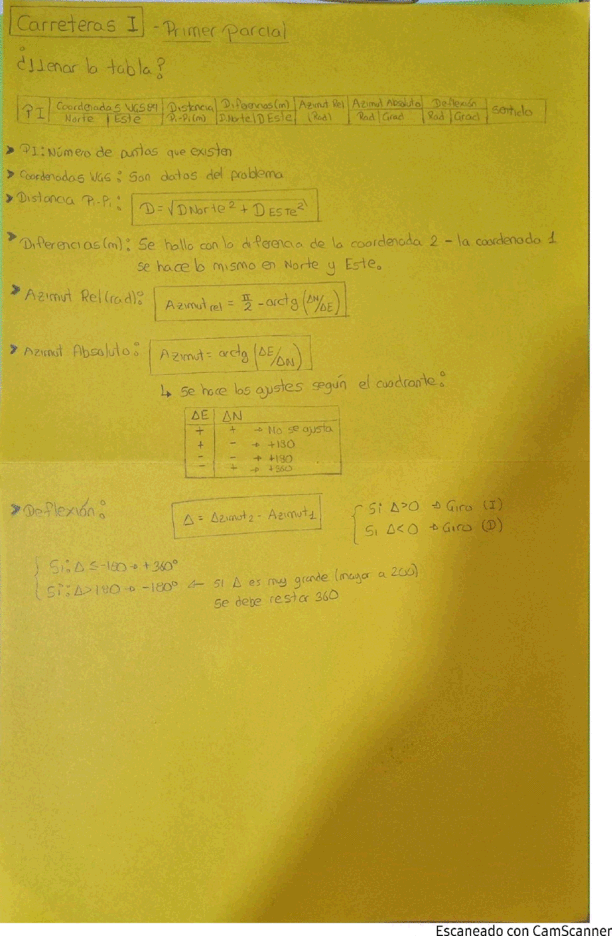 Carreteras I - Primer Parcial
¿Llenar la tabla?
PI | Coordenadas WGS84 | Distancia | Diferencias(m) | Azimut Rel | Azimut Absoluto | Deflexión | Sentido
Norte | Este | Pi-Pi(m) | D.Norte | D Este | (Rad) | Rad | Grad | Rad | Grad
> PI: Número de puntos que existen
> Coordenadas WGS: Son datos del problema
> Distancia Pi-Pi: D = √DNorte² + DESTE²
> Diferencias(m): Se halla con la diferencia de la coordenada 2 - la coordenada 1
se hace lo mismo en Norte y Este.
> Azimut Rel(rad): Azimut rel = π/2 - arctg (ΔN/ΔE)
> Azimut Absoluto: Azimut = arctg (ΔE/ΔN)
↳ Se hace los ajustes según el cuadrante:
ΔE | ΔN
+ + → No se ajusta
+ - → +180
- - → +180
- + → +360
> Deflexión: Δ = Azimut2 - Azimut1 { Si Δ>0 → Giro (I)
Si Δ<0 → Giro (D)
{ Si: Δ ≤ -180 → +360°
Si: Δ > 180 → -180° ← Si Δ es muy grande (mayor a 200)
se debe restar 360
Escaneado con CamScanner